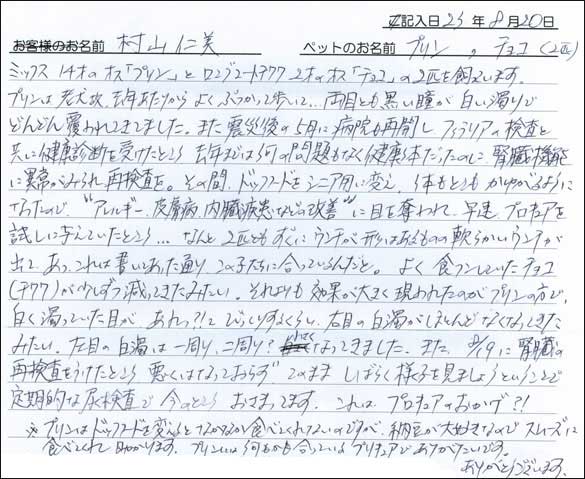 ご記入日 23 年 8 月 20 日
お客様のお名前 村山 仁美 ペットのお名前 プリン , チョコ (2匹)
ミックス 14才のオス「プリン」とロングコートチワワ 2才のオス「チョコ」の2匹を飼ってます。
プリンは老犬故、去年あたりからよくぶつかって歩いて… 両目とも黒い瞳が白い濁りで
どんどん覆われてきてました。また震災後の5月に病院も再開しフィラリアの検査と
共に健康診断を受けたところ 去年までは何の問題もなく健康体だったのに、腎臓機能
に異常がみられ再検査を。その間、ドッグフードをシニア用に変え、体もとても かゆがるように
なったので、"アレルギー、皮膚病、内臓疾患などの改善"に目を奪われて、早速、プロキュアを
試しに与えていたところ… なんと 2匹ともすぐにウンチが形はあるものの軟らかいウンチが
出て、あっ、これは書いてあった通り この子たちに合っているんだと。 よく食フンしていたチョコ
(チワワ)が少しずつ減ってきたみたい。それよりも 効果が大きく現われたのがプリンの方で、
白く濁っていた目が あれっ?!て びっくりするくらい、右目の白濁がほとんどなくなってきた
みたい。左目の白濁は一周り、二周り? なってきました。また、8/9に腎臓の
再検査をうけたところ 悪くはなっておらず、このまま しばらく様子を見ましょうということで
定期的な尿検査で 今のところ おさまってます。 これは、プロキュアのおかげ?!
※ プリンはドッグフードを変えるとなかなか食べてくれないのですが、納豆が大好きなのでスムーズに
食べてくれ 助かります。 プリンには何もかも合っている プリキュアで ありがたいです。
ありがとうございます。